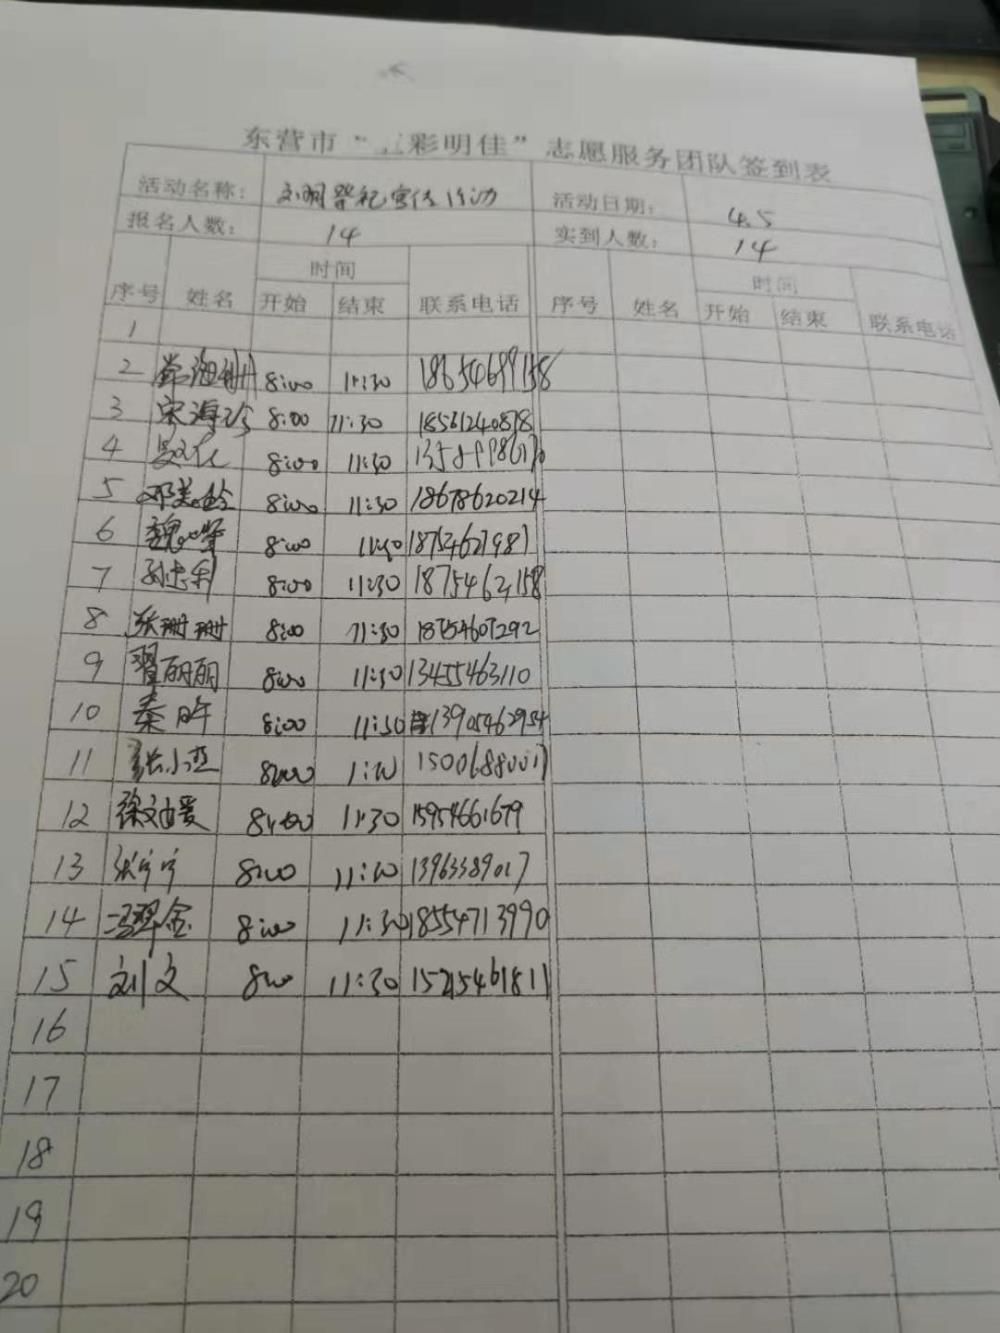 东营市“彩明佳”志愿服务团队签到表
活动名称: 文明祭祀宣传活动 活动日期: 4.5
报名人数: 14 实到人数: 14
序号 姓名 时间 联系电话 序号 姓名 时间 联系电话
开始 结束 开始 结束
1
2 8:00 11:30
3 宋海 8:00 11:30 18561240878
4 8:00 11:30
5 邓美玲 8:00 11:30 18678620214
6 魏 8:00 11:30
7 孙忠利 8:00 11:30
8 张珊珊 8:00 11:30 18754607292
9 翟丽丽 8:00 11:30 13455463110
10 秦 8:00 11:30 13905462954
11 张小燕 8:00
12 徐迪爱 8:00 11:30 15954661679
13 张宁宁 8:00 11:30
14 冯翠金 8:00 11:30 18554713990
15 刘文 8:00 11:30 15215461811
16
17
18
19
20